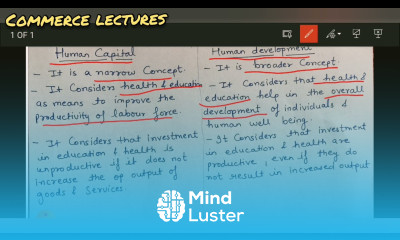 COMMERCE LECTURES
1 OF 1
Human Capital
- It is a narrow Concept.
- It Considers health & education
as means to improve the
Productivity of labour force
- It Considers that investment
in education & health is
unproductive if it does not
increase the of output of
goods & Services
Human development
- It is broader Concept
- It Considers that health &
education help in the overall
development of individuals &
human well being.
- It Considers that investment
in education & health are
productive, even if they do
not result in increased output
Mind
Luster